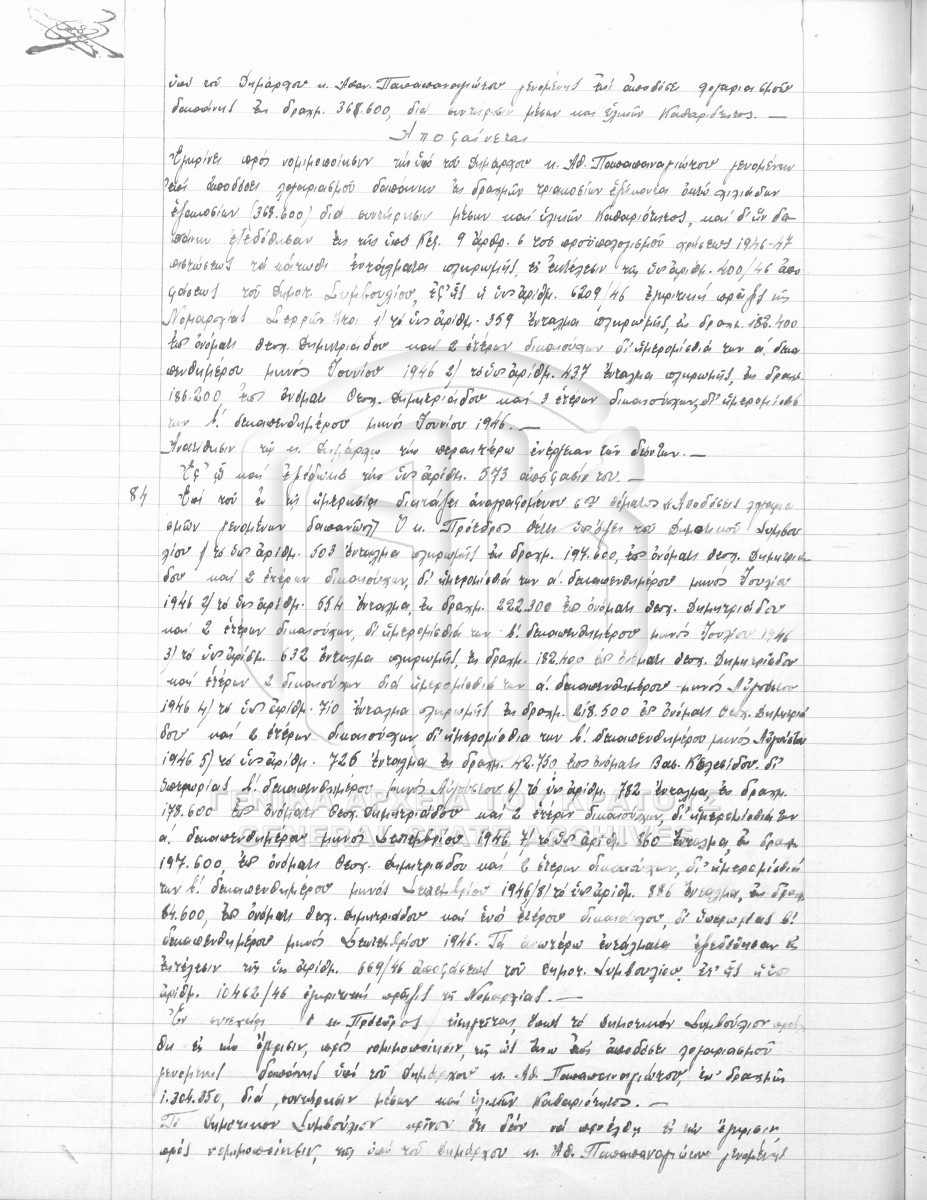 ὑπό τοῦ Δημάρχου κ. Αθαν. Παπαπαναγιώτου γενομένης ἐπί ἀποδόσει λογαριασμοῦ
δαπάνης ἐκ δραχμ. 368.600, διά συντήρησιν μέσων καί ὑλικῶν Καθαριότητος. —
Ἀποφαίνεται
Ἐγκρίνει πρός νομιμοποίησιν τήν ὑπό τοῦ Δημάρχου κ. Ἀθ. Παπαπαναγιώτου γενομένην
ἐπί ἀποδόσει λογαριασμοῦ δαπάνην ἐκ δραχμῶν τριακοσίων ἑξήκοντα ὀκτώ χιλιάδων
ἑξακοσίων (368.600) διά συντήρησιν μέσων καί ὑλικῶν Καθαριότητος, καί δι' ὧν δα-
πάνην ἐξεδόθησαν ἐκ τῆς ὑπό Κεφ. 9 ἄρθρ. 6 τοῦ προϋπολογισμοῦ χρήσεως 1946-47
πιστώσεως τά κάτωθι ἐντάλματα πληρωμῆς, εἰς ἐκτέλεσιν τῆς ὑπ' ἀριθμ. 400/46 ἀπο
φάσεως τοῦ Δημοτ. Συμβουλίου, ἐφ' ἧς ἡ ὑπ' ἀριθμ. 6209/46 ἐγκριτική πρᾶξις τῆς
Νομαρχίας Σερρῶν ἤτοι 1) τό ὑπ' ἀριθμ. 359 ἔνταλμα πληρωμῆς, ἐκ δραχμ. 182.400
ἐπ' ὀνόματι Θεοχ. Δημητριάδου καί 2 ἑτέρων δικαιούχων δι' ἡμερομίσθιά των α΄. δεκα
πενθημέρου μηνός Ἰουνίου 1946 2) τό ὑπ' ἀριθμ. 437 ἔνταλμα πληρωμῆς, ἐκ δραχμ.
186.200, ἐπ' ὀνόματι Θεοχ. Δημητριάδου καί 3 ἑτέρων δικαιούχων, δι' ἡμερομίσθιά
των β΄. δεκαπενθημέρου μηνός Ἰουνίου 1946. —
Ἀνατίθησιν τῷ κ. Δημάρχῳ τήν περαιτέρω ἐνέργειαν τῶν δεόντων. —
Ἐφ' ᾧ καί ἐξεδόθη τήν ὑπ' ἀριθμ. 573 ἀπόφασίν του. —
84 Ἐπί τοῦ ἐν τῇ ἡμερησίᾳ διατάξει ἀναγραφομένου 6ου θέματος «Ἀποδόσεις λογαρια
σμῶν γενομένων δαπανῶν» Ὁ κ. Πρόεδρος θέτει ὑπ' ὄψει τοῦ Δημοτικοῦ Συμβου
λίου 1) τό ὑπ' ἀριθμ. 503 ἔνταλμα πληρωμῆς ἐκ δραχμ. 197.600, ἐπ' ὀνόματι Θεοχ. Δημητριά-
δου καί 2 ἑτέρων δικαιούχων, δι' ἡμερομίσθιά των α΄. δεκαπενθημέρου μηνός Ἰουλίου
1946 2) τό ὑπ' ἀριθμ. 554 ἔνταλμα, ἐκ δραχμ. 222.300 ἐπ' ὀνόματι Θεοχ. Δημητριάδου
καί 2 ἑτέρων δικαιούχων, δι' ἡμερομίσθιά των β΄. δεκαπενθημέρου μηνός Ἰουλίου 1946
3) τό ὑπ' ἀριθμ. 632 ἔνταλμα πληρωμῆς, ἐκ δραχμ. 182.400 ἐπ' ὀνόματι Θεοχ. Δημητριάδου
καί ἑτέρων 2 δικαιούχων διά ἡμερομίσθιά των α΄. δεκαπενθημέρου μηνός Αὐγούστου
1946 4) τό ὑπ' ἀριθμ. 710 ἔνταλμα πληρωμῆς ἐκ δραχμ. 218.500 ἐπ' ὀνόματι Θεοχ. Δημητριά
δου καί 2 ἑτέρων δικαιούχων δι' ἡμερομίσθιά των β΄. δεκαπενθημέρου μηνός Αὐγούστου
1946 5) τό ὑπ' ἀριθμ. 726 ἔνταλμα ἐκ δραχμ. 42.750 ἐπ' ὀνόματι Βασ. δι'
ὑπερωρίας β΄. δεκαπενθημέρου μηνός Αὐγούστου 6) τό ὑπ' ἀριθμ. 782 ἔνταλμα, ἐκ δραχμ.
178.600 ἐπ' ὀνόματι Θεοχ. Δημητριάδου καί 2 ἑτέρων δικαιούχων, δι' ἡμερομίσθιά των
α΄. δεκαπενθημέρου μηνός Σεπτεμβρίου 1946 7) τό ὑπ' ἀριθμ. 860 ἔνταλμα, ἐκ δραχμ.
197.600, ἐπ' ὀνόματι Θεοχ. Δημητριάδου καί 2 ἑτέρων δικαιούχων, δι' ἡμερομίσθιά
των β΄. δεκαπενθημέρου μηνός Σεπτεμβρίου 1946 8) τό ὑπ' ἀριθμ. 886 ἔνταλμα, ἐκ δραχ.
64.600, ἐπ' ὀνόματι Θεοχ. Δημητριάδου καί ἑνός ἑτέρου δικαιούχου, δι' ὑπερωρίας β΄.
δεκαπενθημέρου μηνός Σεπτεμβρίου 1946. Τά ἀνωτέρω ἐντάλματα ἐξεδόθησαν εἰς
ἐκτέλεσιν τῆς ὑπ' ἀριθμ. 669/46 ἀποφάσεως τοῦ Δημοτ. Συμβουλίου, ἐφ' ἧς ἡ ὑπ'
ἀριθμ. 10462/46 ἐγκριτική πρᾶξις τῆς Νομαρχίας. —
Ἐν συνεχείᾳ ὁ κ. Πρόεδρος εἰσηγεῖται ὅπως τό Δημοτικόν Συμβούλιον προέλ
θῃ εἰς τήν ἔγκρισιν, πρός νομιμοποίησιν, τῆς ὡς ἄνω ἐπί ἀποδόσει λογαριασμοῦ
γενομένης δαπάνης ὑπό τοῦ Δημάρχου κ. Ἀθ. Παπαπαναγιώτου, ἐκ δραχμῶν
1.304.350, διά συντήρησιν μέσων καί ὑλικῶν Καθαριότητος. —
Τό Δημοτικόν Συμβούλιον κρῖνον ὅτι δέον νά προέλθῃ εἰς τήν ἔγκρισιν
πρός νομιμοποίησιν, τῆς ὑπό τοῦ Δημάρχου κ. Ἀθ. Παπαπαναγιώτου γενομένης
ΓΕΝΙΚΑ ΑΡΧΕΙΑ ΤΟΥ ΚΡΑΤΟΥΣ
GENERAL STATE ARCHIVES